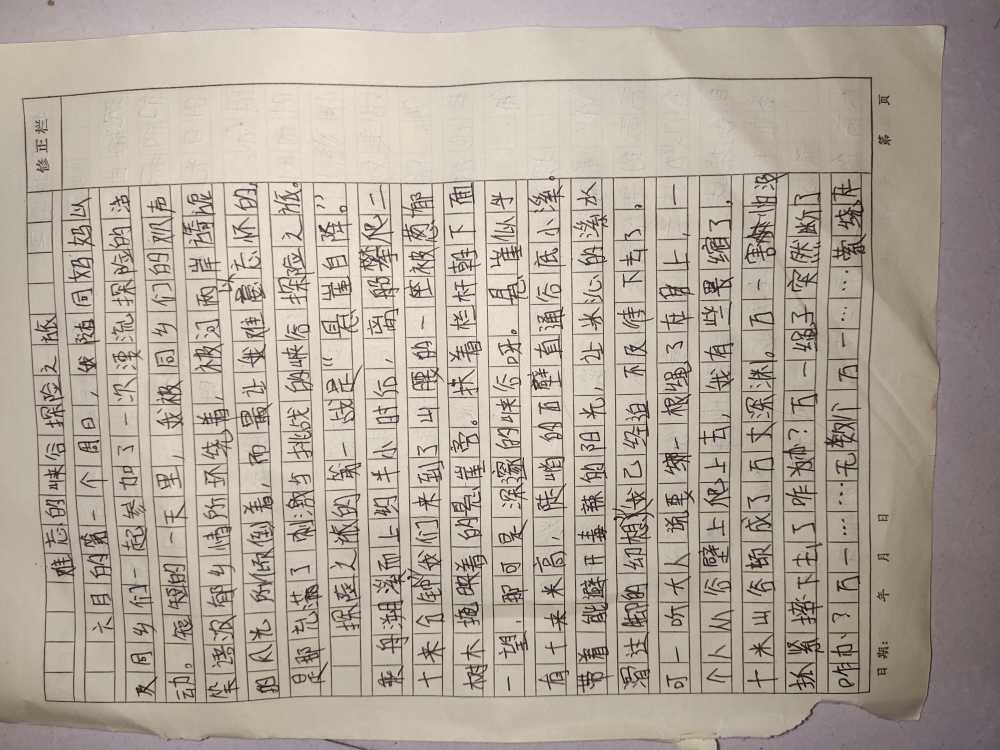 修正栏
难忘的峡谷探险之旅
六月的第一个周日，我随同妈妈以
及同乡们一起参加了一次漂流探险的活
动。短短的一天里，我被同乡们的欢声
笑语浓郁乡情所环绕着，被河两岸旖旎
的风光所倾倒着，而最让我难以忘怀的，
是那充满了刺激与挑战的峡谷探险之旅。
探险之旅的第一战是“悬崖自降。”
乘舟溯溪而上约半小时后，离船攀爬二
十来分钟，我们来到了山腰的一座被葱郁
树木掩映着的悬崖旁。扶着栏杆朝下面
一望，那可是深邃的峡谷呀。悬崖似乎
有十来米高，陡峭的面壁直通谷底小溪。
带着能避开毒辣的阳光，让米沁的溪水
滑过脚的幻想，我已经迫不及待下去了，
可一听大人说要绑一根绳子在身上，一
个人从谷壁上爬上去，我有些畏缩了，
十米山谷顿成了万丈深渊。万一害怕没
抓紧摔下去了咋办？万一绳子突然断了
咋办？万一……无数个万一……萦绕在
日期： 年 月 日
第 页